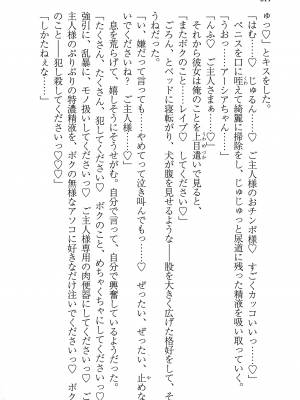 ゅっ♡」とキスをした。
「はむ……♡　じゅるん……♡　ご主人様のおチンポ様♡　すごくカッコいいっ……♡」
ペニスを口に咥えて綺麗に掃除をし、じゅじゅっと尿道に残った精液を吸い取っていく。
「うおっ……アーシアちゃん！」
「んふ♡　ご主人さまぁ♡」
それから彼女は俺のことを上目遣いで見ると、
「またボクのこと……レイプ♡　してください♡」
ごろん、とベッドに寝転がり、犬が腹を見せるような――股を大きく広げた格好をして、そ
う言った。
「い、嫌だって言っても……やめてって泣き叫んでもっ……♡　ぜったい、ぜったい、止めな
いでくださいねっ♡　ご主人様……♡」
息を荒らげて、嬉しそうにそうせがむ。自分で言って、自分で興奮しているようだった。
「たくさん、たくさん、犯してくださいっ♡　ボクのこと、めちゃくちゃにしてくださいっ♡
強引に、乱暴に、モノ扱いしてくださいっ♡♡　ご主人様専用の肉便器にしてくださいっ♡　ご
主人様のぷりぷりの特濃精液を、ボクの無様なアソコに好きなだけ注いでくださいっ♡　ボク
のこと――犯し殺してくださいっ♡♡♡」
「しかたねぇな……」